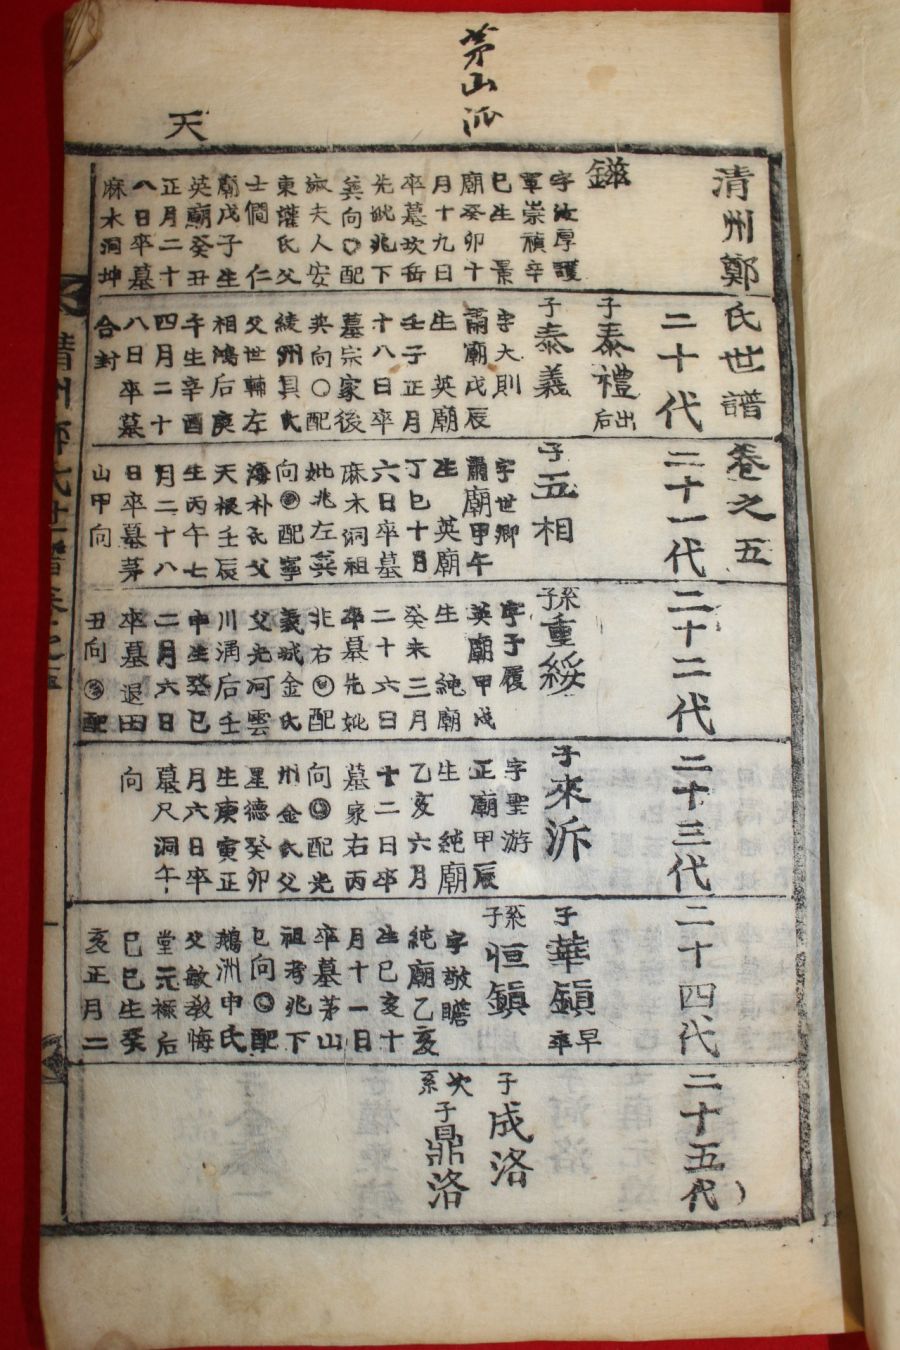 茅山派
天
清州鄭氏世譜 卷之五
鎡
字汝厚護
軍崇禎辛
巳生 景
廟癸卯十
月十九日
卒墓坎岳
先妣兆下
艮向〇配
淑夫人安
東權氏父
士僴 仁
廟戊子生
英廟癸丑
正月二十
八日卒墓
麻木洞坤
二十代
子泰禮出后
子泰義
字大則
肅廟戊辰
生 英廟
壬子正月
十八日卒
墓宗家後
巽向〇配
綾州具氏
父世輔左
相鴻后庚
午生辛酉
四月二十
八日卒墓
合封
二十一代
子五相
字世卿
肅廟甲午
生 英廟
丁巳十月
六日卒墓
麻木洞祖
妣兆左巽
向 配寧
海朴氏父
天根壬辰
生丙午七
月二十八
日卒墓茅
山甲向
二十二代
系子重綏
字子履
英廟甲戌
生 純廟
癸未三月
二十六日
卒墓先妣
兆右 配
義城金氏
父光河雲
川涌后壬
申生癸巳
二月六日
卒墓退田
丑向 配
二十三代
子來泝
字聖游
正廟甲辰
生 純廟
乙亥六月
十二日卒
墓家右丙
向 配光
州金氏父
星德癸卯
生庚寅正
月六日卒
墓尺洞午
向
二十四代
子華鎭早卒
系子恒鎭
字敬瞻
純廟乙亥
生己亥十
月十一日
卒墓茅山
祖考兆下
巳向 配
鵝洲申氏
父敏敎悔
堂元祿后
己巳生癸
亥正月二
二十五代
子成洛
次系子鼎洛
清州鄭氏世譜卷之五
一